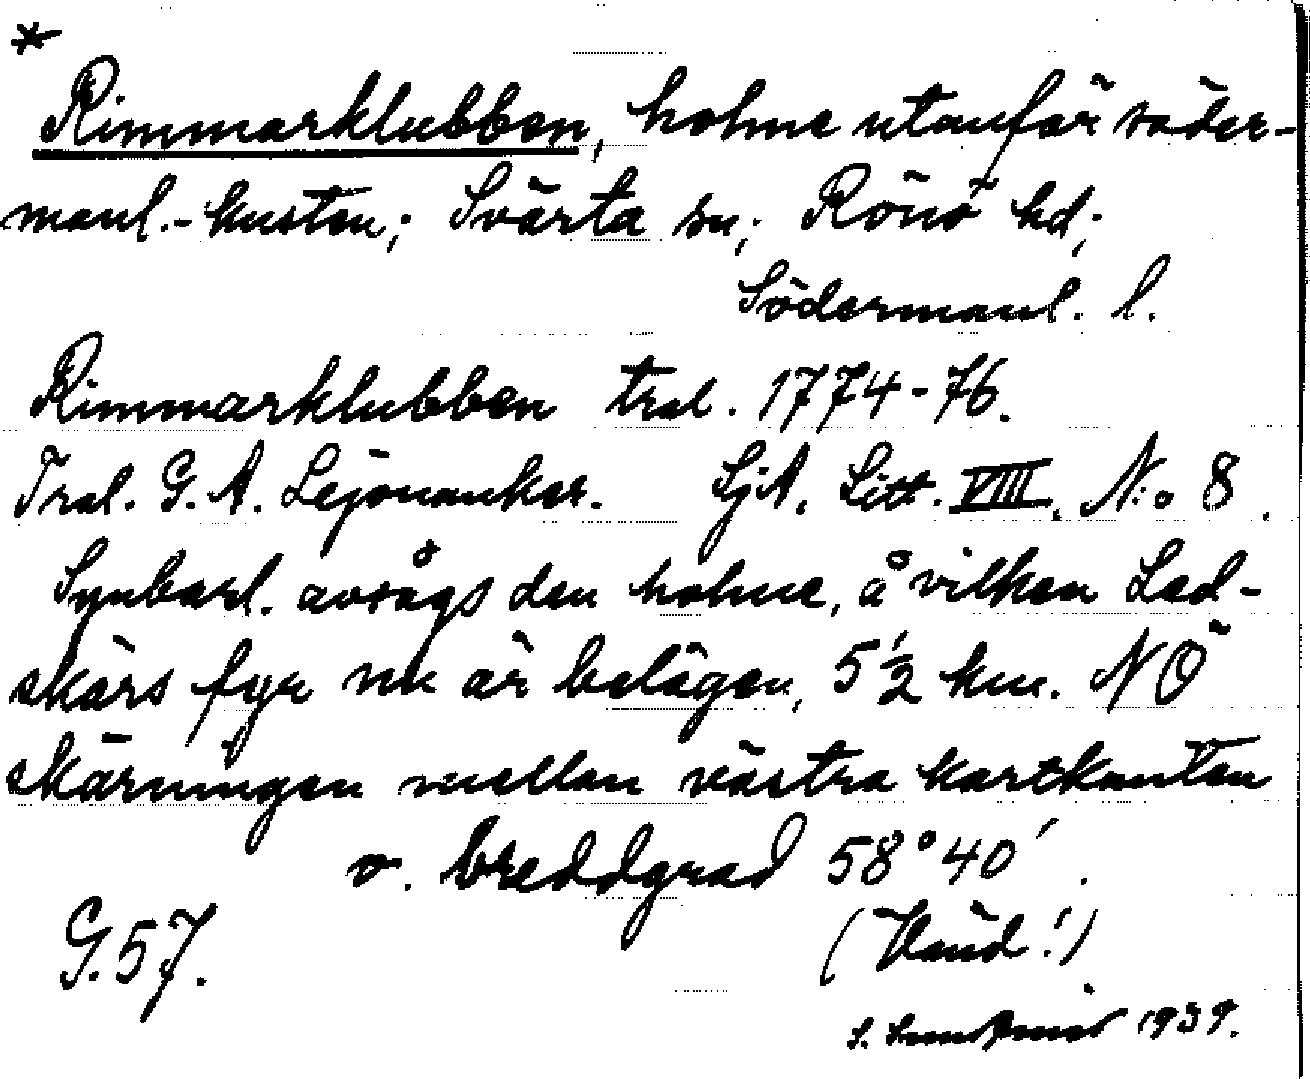 *
Rimmarklubben, holme utanför söder-
manl.-kusten; Svärta sn; Rönö hd;
Södermanl. l.
Rimmarklubben tral. 1774-76.
Tral. G. A. Lejonanker. SjA. Litt. VIII. N:o 8.
Synbarl. avsågs den holme, å vilken Led-
skärs fyr nu är belägen, 5 1/2 km. NÖ
skärningen mellan västra kartkanten
o. breddgrad 58°40'.
G. 57. (Händ!)
S. 1939.